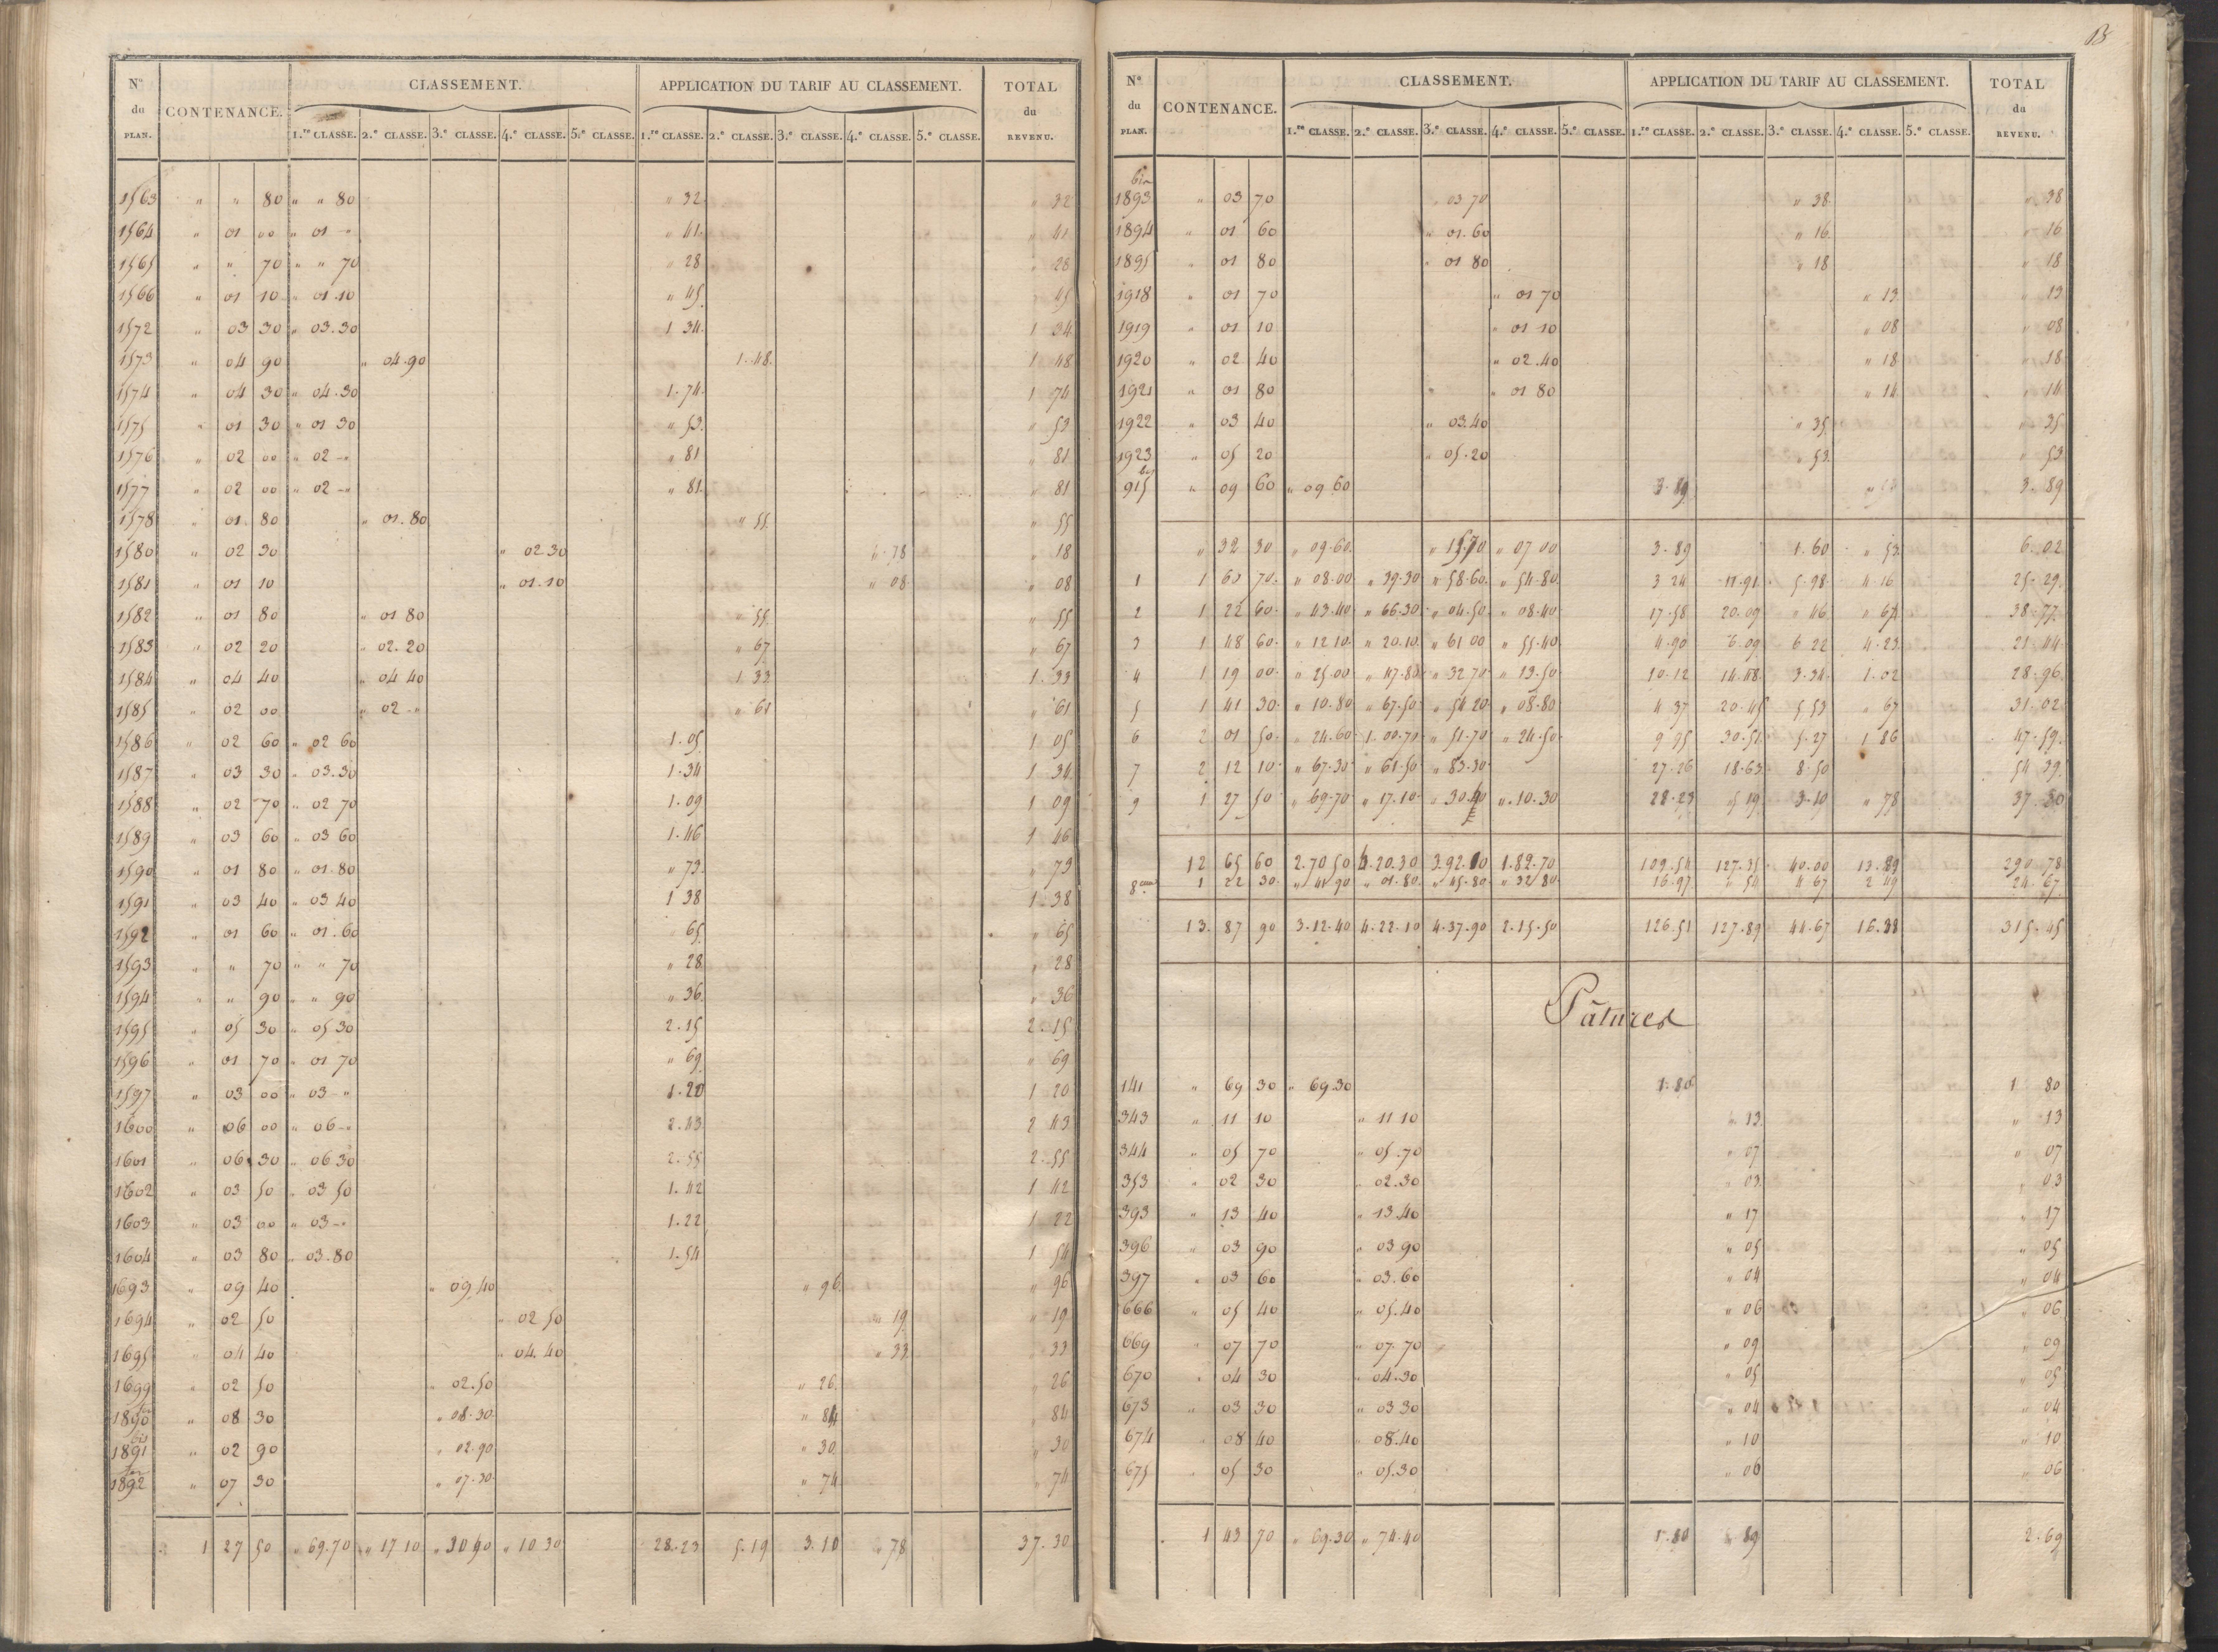 N.º du PLAN. CONTENANCE. CLASSEMENT. APPLICATION DU TARIF AU CLASSEMENT. TOTAL du REVENU.
1.re CLASSE. 2.e CLASSE. 3.e CLASSE. 4.e CLASSE. 5.e CLASSE. 1.re CLASSE. 2.e CLASSE. 3.e CLASSE. 4.e CLASSE. 5.e CLASSE.
1563 " " 80 " " 80 " 32 " 32
1564 " 01 00 " 01 - " 41 " 41
1565 " " 70 " " 70 " 28 " 28
1566 " 01 10 " 01.10 " 45 " 45
1572 " 03 30 " 03.30 1 34 1 34
1573 " 04 90 " 04.90 1.48 1 48
1574 " 04 30 " 04.30 1.74 1 74
1575 " 01 30 " 01 30 " 53 " 53
1576 " 02 00 " 02 - " 81 " 81
1577 " 02 00 " 02 - " 81 " 81
1578 " 01 80 " 01.80 " 55 " 55
1580 " 02 30 " 02 30 " 18 " 18
1581 " 01 10 " 01.10 " 08 " 08
1582 " 01 80 " 01 80 " 55 " 55
1583 " 02 20 " 02.20 " 67 " 67
1584 " 04 40 " 04 40 1 33 1.33
1585 " 02 00 " 02 - " 61 " 61
1586 " 02 60 " 02 60 1.05 1 05
1587 " 03 30 " 03.30 1.34 1 34
1588 " 02 70 " 02 70 1.09 1 09
1589 " 03 60 " 03 60 1.46 1 46
1590 " 01 80 " 01.80 " 73 " 73
1591 " 03 40 " 03 40 1 38 1.38
1592 " 01 60 " 01.60 65 " 65
1593 " " 70 " " 70 " 28 " 28
1594 " " 90 " " 90 " 36 " 36
1595 " 05 30 " 05 30 2.15 2.15
1596 " 01 70 " 01 70 " 69 " 69
1597 " 03 00 " 03 - " 1.20 1 20
1600 " 06 00 " 06 - " 2.43 2 43
1601 " 06 30 " 06 30 2.55 2.55
1602 " 03 50 " 03 50 1.42 1 42
1603 " 03 00 " 03 - " 1.22 1 22
1604 " 03 80 " 03.80 1.54 1 54
1693 " 09 40 " 09 40 " 96 " 96
1694 " 02 50 " 02 50 " 19 " 19
1695 " 04 40 " 04.40 " 33 " 33
1699 " 02 50 " 02.50 " 26 " 26
1890 " 08 30 " 08.30 " 84 " 84
bis
1891 " 02 90 " 02.90 " 30 " 30
1892 " 07 30 " 07.30 " 74 " 74
1 27 50 " 69.70 " 17 10 " 30 40 " 10 30 28.23 5.19 3.10 " 78 37.30
13
N.º du PLAN. CONTENANCE. CLASSEMENT. APPLICATION DU TARIF AU CLASSEMENT. TOTAL du REVENU.
1.re CLASSE. 2.e CLASSE. 3.e CLASSE. 4.e CLASSE. 5.e CLASSE. 1.re CLASSE. 2.e CLASSE. 3.e CLASSE. 4.e CLASSE. 5.e CLASSE.
bis
1893 " 03 70 " 03 70 " 38 " 38
1894 " 01 60 " 01.60 " 16 " 16
1895 " 01 80 " 01 80 " 18 " 18
1918 " 01 70 " 01 70 " 13 " 13
1919 " 01 10 " 01 10 " 08 " 08
1920 " 02 40 " 02.40 " 18 " 18
1921 " 01 80 " 01 80 " 14 " 14
1922 " 03 40 " 03.40 " 35 " 35
1923 " 05 20 " 05.20 " 53 " 53
bis
915 " 09 60 " 09 60 3.89 3.89
" 32 30 " 09.60 " 15.70 " 07 00 3.89 1.60 " 53 6.02
1 1 60 70 " 08.00 " 39.30 " 58.60 " 54.80 3 24 11.91 5.98 4.16 25.29
2 1 22 60 " 43.40 " 66.30 " 04.50 " 08.40 17.58 20.09 " 46 " 64 38.77
3 1 48 60 " 12 10 " 20.10 " 61 00 " 55.40 4.90 6.09 6 22 4.23 21.44
4 1 19 00 " 25.00 " 47.80 " 32 70 " 13.50 10.12 14.48 3.34 1.02 28.96
5 1 41 30 " 10.80 " 67.50 " 54 20 " 08.80 4 37 20.45 5 53 " 67 31.02
6 2 01 50 " 24.60 1.00.70 " 51.70 " 24.50 9 95 30.51 5.27 1 86 47.59
7 2 12 10 " 67.30 " 61.50 " 83.30 27.26 18.63 8.50 54 39
9 1 27 50 " 69.70 " 17.10 " 30.40 " 10.30 28.23 5 19 3.10 " 78 37.30
12 65 60 2.70 50 4.20.30 3.92.10 1.82.70 109.54 127.35 40.00 13.89 290.78
8 1 22 30 " 41 90 " 01.80 " 45.80 " 32 80 16.97 " 54 4 67 2 49 24.67
13 87 90 3.12.40 4.22.10 4.37.90 2.15.50 126.51 127.89 44.67 16.38 315.45
Pâtures
141 " 69 30 " 69.30 1.80 1 80
343 " 11 10 " 11 10 " 13 " 13
344 " 05 70 " 05.70 " 07 " 07
353 " 02 30 " 02.30 " 03 " 03
393 " 13 40 " 13.40 " 17 " 17
396 " 03 90 " 03 90 " 05 " 05
397 " 03 60 " 03.60 " 04 " 04
666 " 05 40 " 05.40 " 06 " 06
669 " 07 70 " 07.70 " 09 " 09
670 " 04 30 " 04.30 " 05 " 05
673 " 03 30 " 03 30 " 04 " 04
674 " 08 40 " 08.40 " 10 " 10
675 " 05 30 " 05.30 " 06 " 06
1 43 70 " 69.30 " 74.40 1.80 " 89 2.69